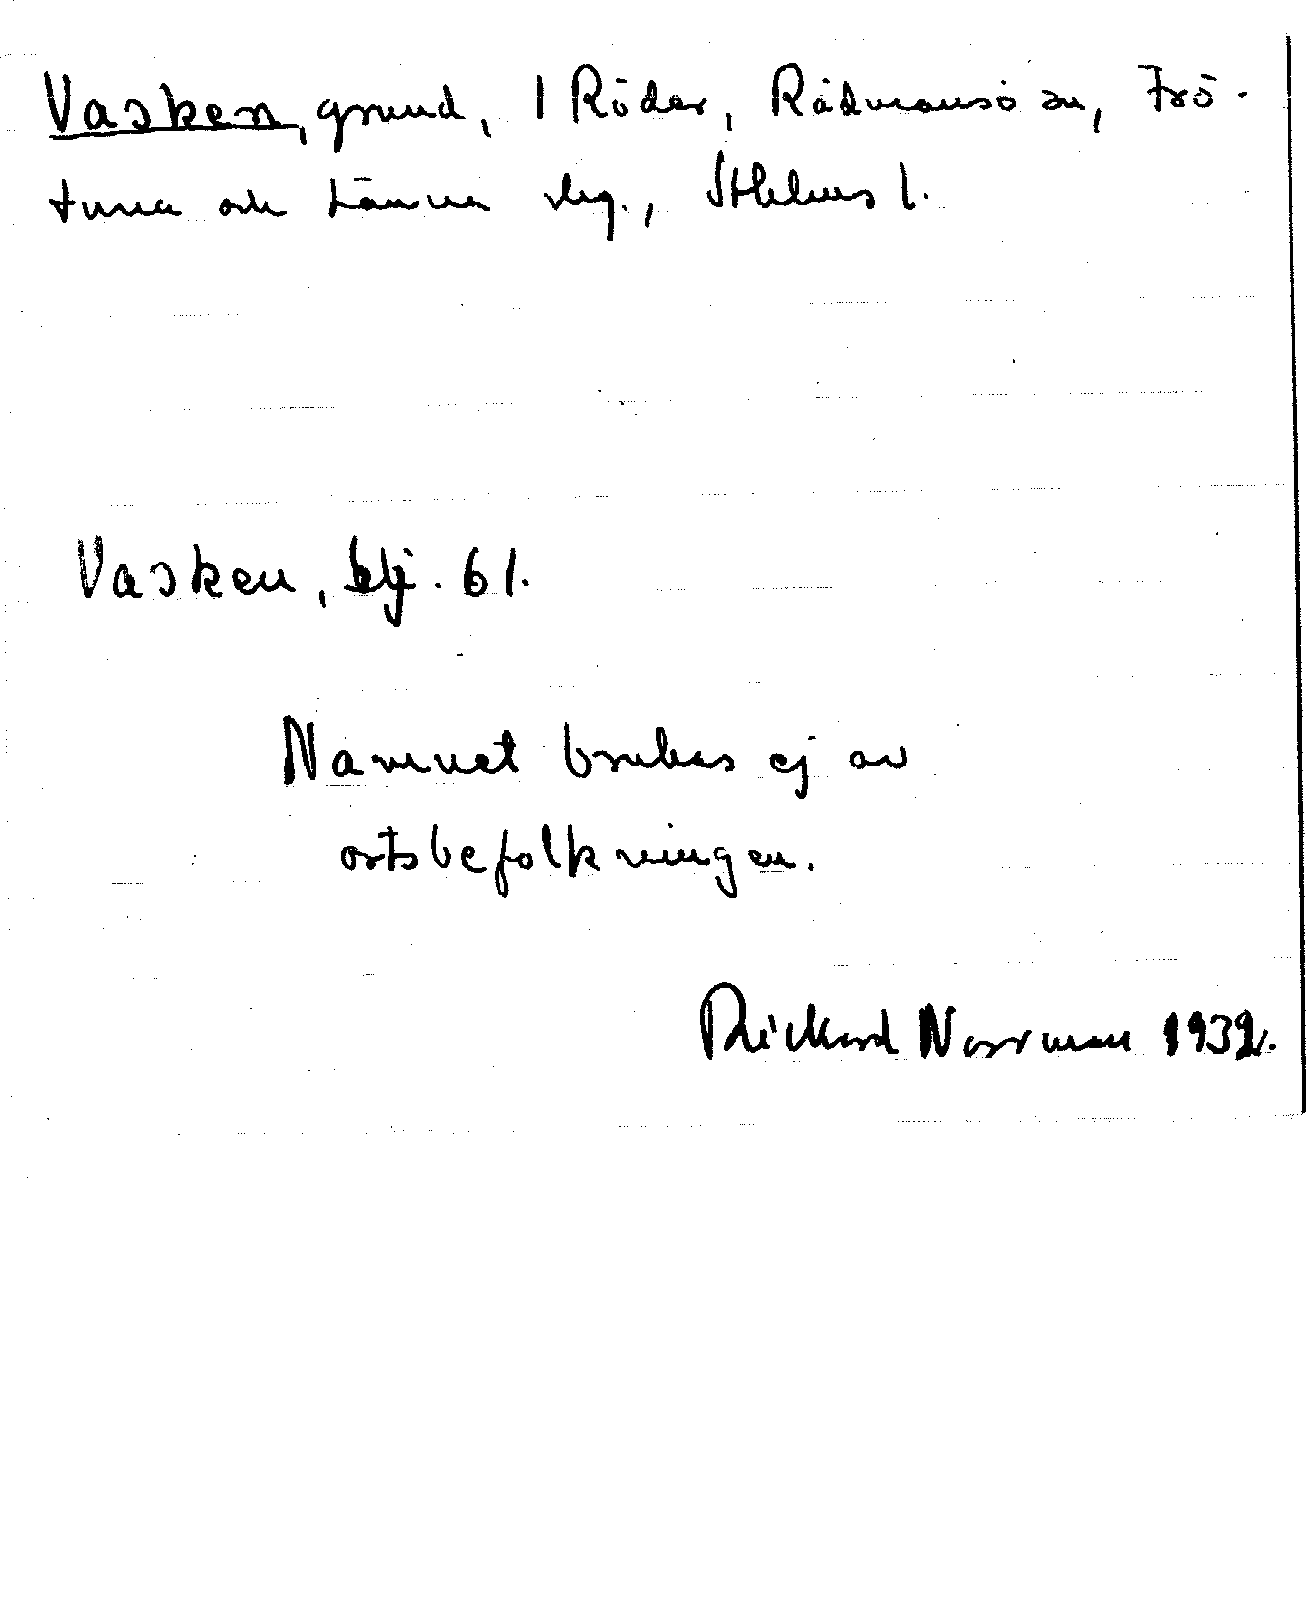 Vasken, grund, I Röder, Rådmansö sn, Frö-
tuna och Länna slg., Sthlms l.
Vasken, blj. 61.
Namnet brukas ej av
ortsbefolkningen.
Rickard Norrman 1932.